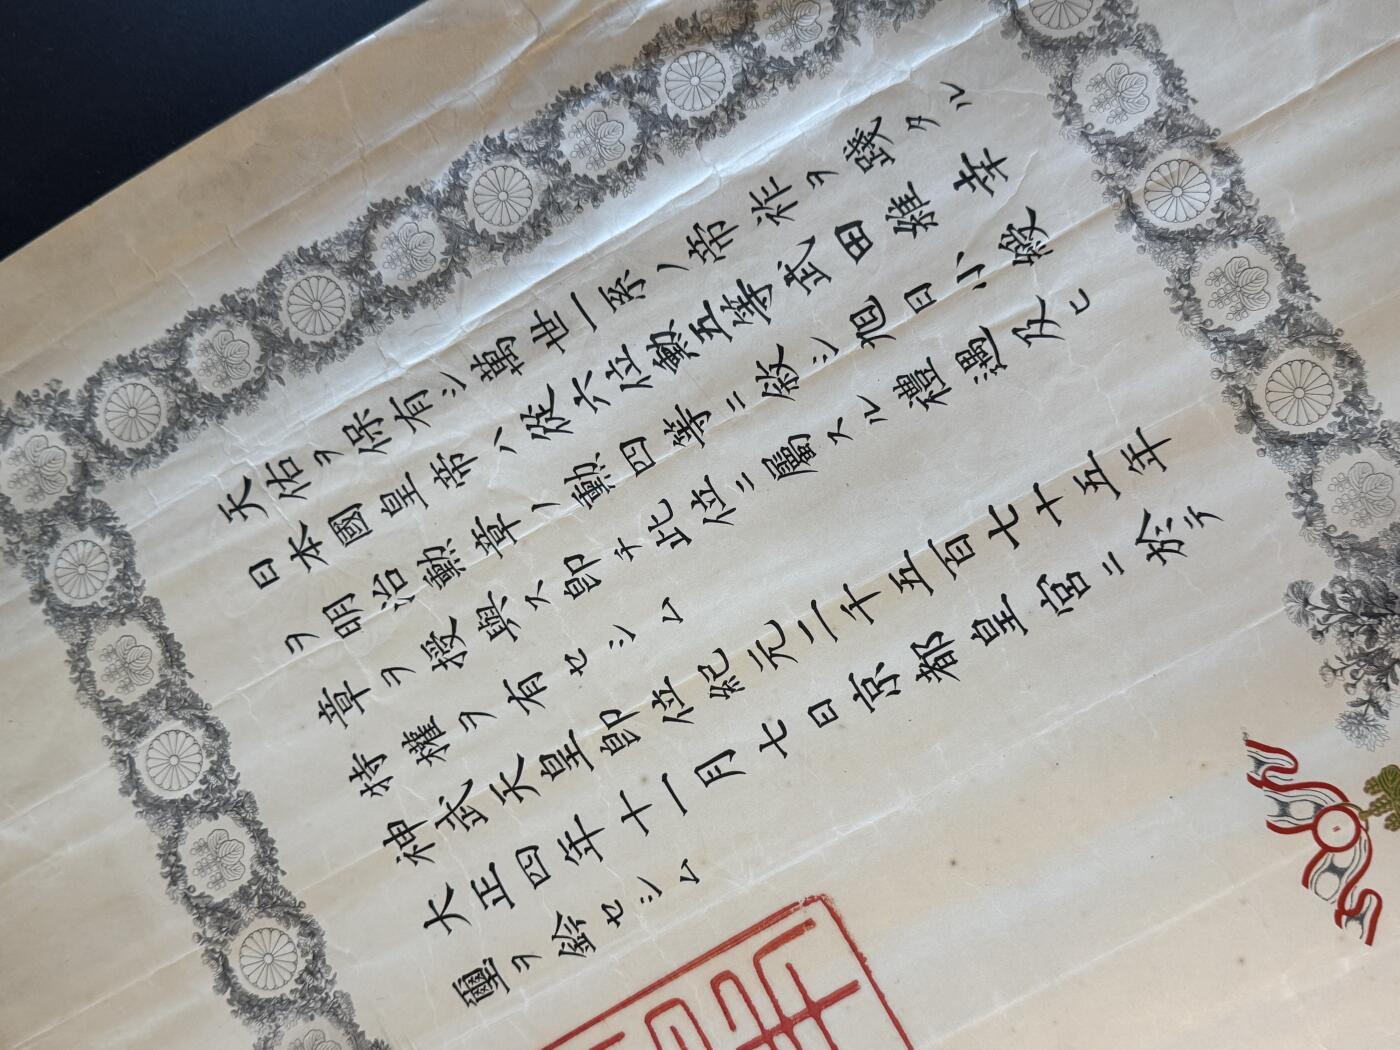 天佑ヲ保有シ萬世一系ノ帝祚ヲ踐タル
日本國皇帝ハ從六位勳五等武田雄幸
ヲ明治勳章ノ勳四等ニ敍シ旭日小綬
章ヲ授與ス即チ此位ニ屬スル禮遇及ヒ
特權ヲ有セシム
神武天皇即位紀元二千五百七十五年
大正四年十一月七日京都皇宮ニ於テ
璽ヲ鈐セシム